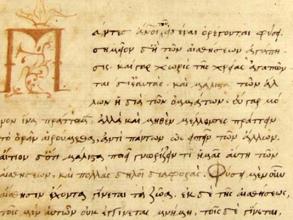 Πάντες ἄνοι τοῦ εἰδέναι ὀρέγονται φύσει
σημεῖον δ' ἡ τῶν αἰσθήσεων ἀγάπη
σις. καὶ γὰρ χωρὶς τῆς χρείας ἀγαπῶν
ται δι' αὑτάς. καὶ μάλιστα τῶν ἄλ
λων ἡ διὰ τῶν ὀμμάτων. οὐ γὰρ μό
νον ἵνα πράττωμεν ἀλλὰ καὶ μηδὲν μέλλοντες πράττειν
τὸ ὁρᾶν αἱρούμεθα. ἀντὶ πάντων ὡς εἰπεῖν τῶν ἄλλων.
αἴτιον δ' ὅτι μάλιστα ποιεῖ γνωρίζειν τι ἡμᾶς αὕτη τῶν
αἰσθήσεων. καὶ πολλὰς δηλοῖ διαφοράς. Φύσει μὲν οὖν
αἴσθησιν ἔχοντα γίνεται τὰ ζῶα. ἐκ δὲ τῆς αἰσθήσεως,
τοῖς μὲν αὐτῶν οὐκ ἐγγίνεται μνήμη, τοῖς δὲ γίνεται.